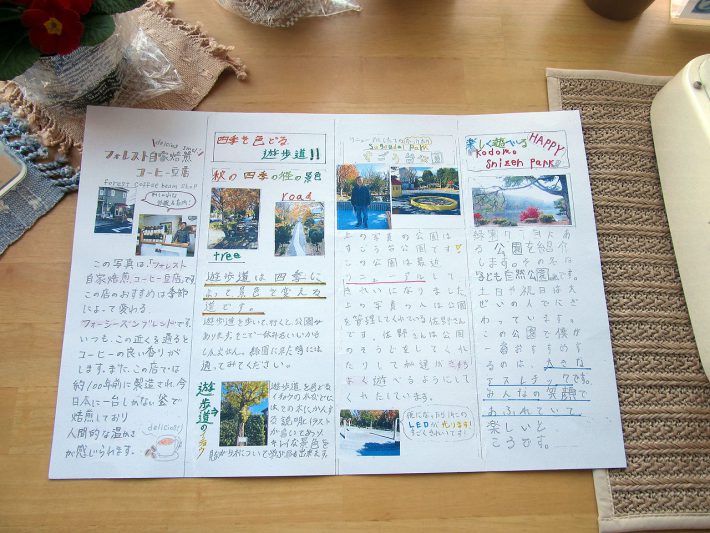 フォレスト自家焙煎
コーヒー豆店
forest coffee bean shop
この写真は、「フォレスト
自家焙煎コーヒー豆店」です
この店のおすすめは季節
によって変わる
フォーシーズンブレンドです。
いつも、この近くを通ると
コーヒーの良い香りが
します。また、この店では
約100年前に製造され、今
日本に一台しかない釜で
焙煎しており
人間的な温かさ
が感じられます。
delicious!
四季を色どる
遊歩道!!
秋の四季の径の景色
road
tree
遊歩道は四季に
よって景色を変える
道です。
遊歩道を歩いて行くと、公園が
あります。そこで一休みもいいかも
しれません。
通ってみてください。
遊歩道の
遊歩道を色どる
イチョウの木などに
はその木にかんす
る説明とイラスト
が書いてあり、
キレイな景色を
Sugoudai Park
すごう台公園
上の写真の公園は
すごう台公園です!
この公園は最近
リニューアルして
きれいになりました。
上の写真の人は公園
を管理してくれている佐野さん
です。佐野さんは公園
のそうじをしてくれ
たりして私達がきもち
よく遊べるようにして
くれています。
夜になったらソリのこの
LEDが光ります!
すごくきれいです!
楽しく遊べる
HAPPY
Kodomo
Snizen Park
公園を紹介
します。その名は
こども自然公園です。
土日や祝日は大
ぜいの人でにぎ
わっています。
この公園で僕が
一番おすすめす
るのは、大きな
アスレチックです。
みんなの笑顔で
あふれていて
楽しいと
ころです。